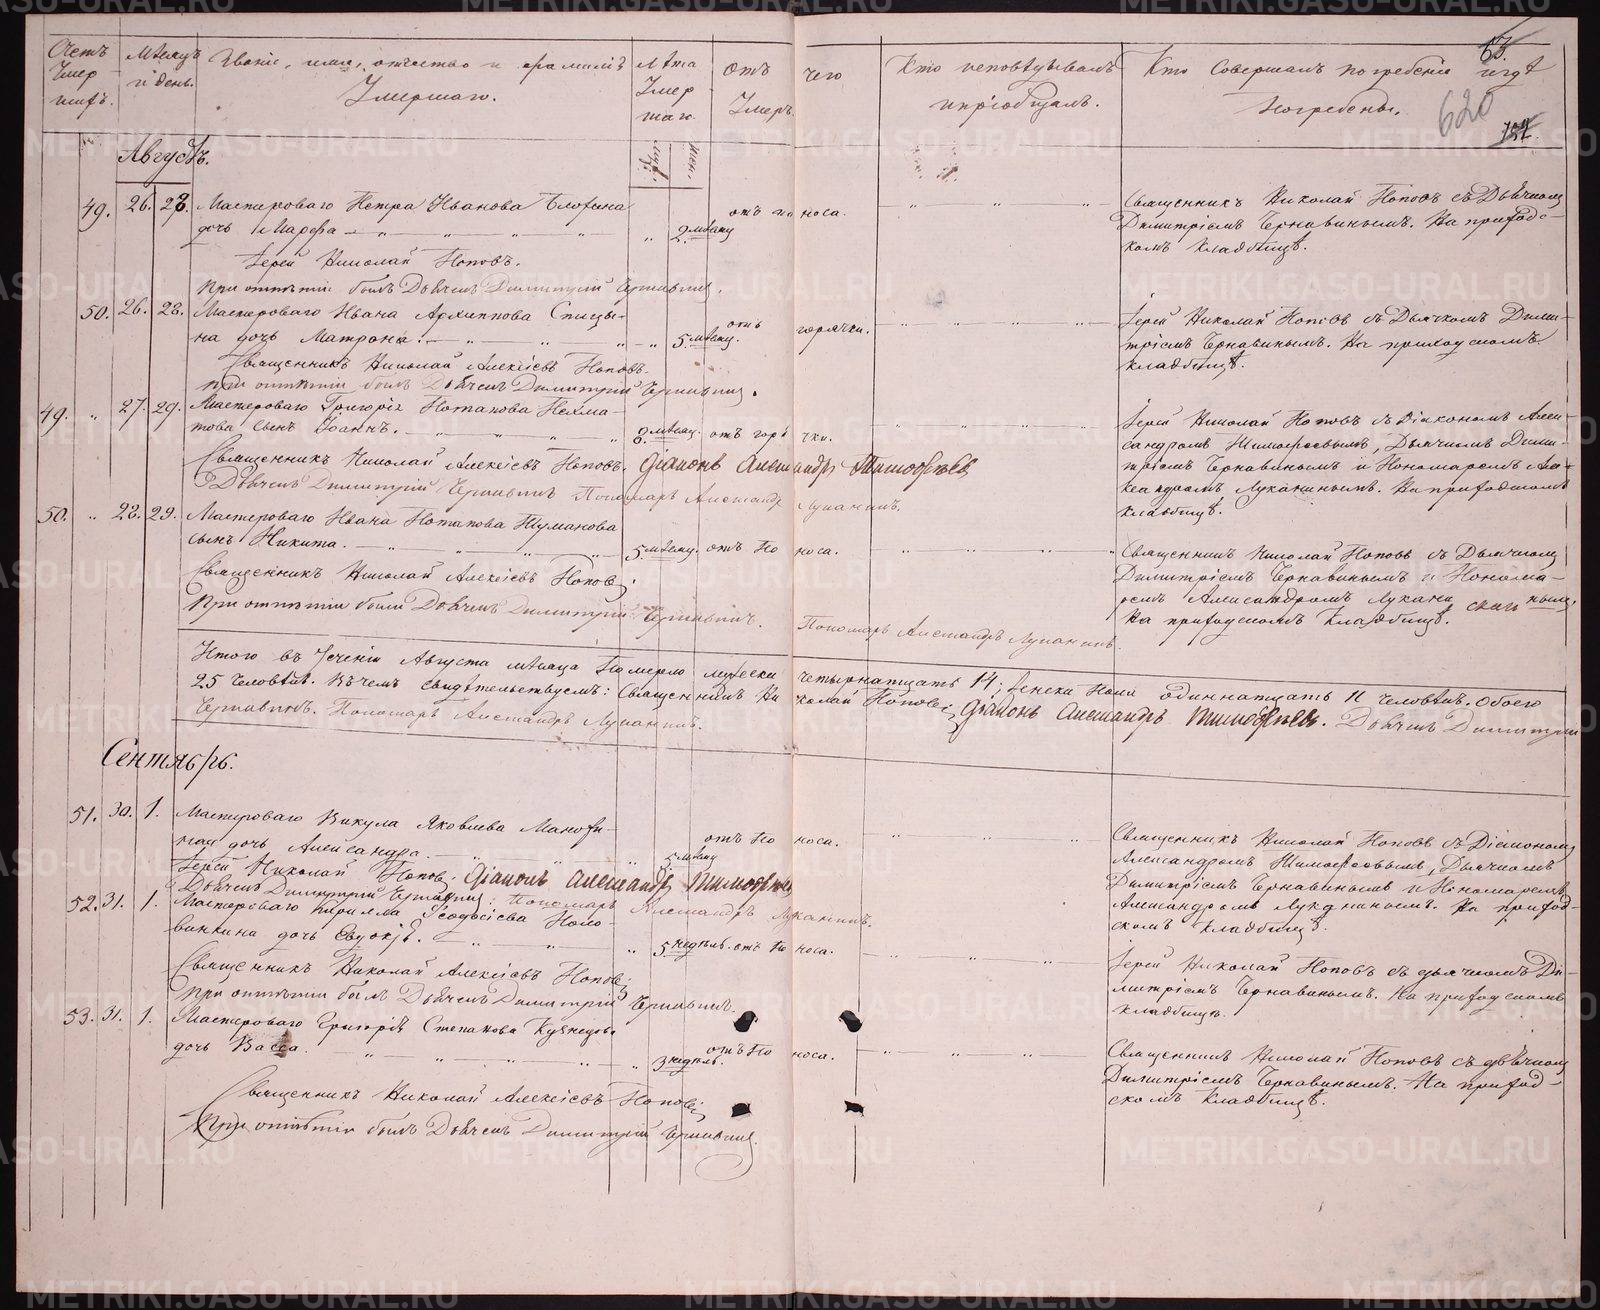 Счетъ Умершихъ.
Мѣсяцъ и день.
Званіе, имя, отчество и фамилія Умершаго.
Лѣта Умершаго.
Отъ чего Умеръ.
Кто исповѣдывалъ и пріобщалъ.
Кто Совершалъ погребеніе и гдѣ Погребены.
63.
620
Августъ.
49. 26. 28. Мастероваго Петра Иванова
дочь Марфа — 2 мѣсяц отъ поноса.
Священникъ Николай Поповъ съ Дьячкомъ
Димитріемъ Чернавинымъ. На приход-
комъ Кладбищѣ.
Іерей Николай Поповъ.
При отпѣтіи былъ Дьячекъ Димитрій Чернавинъ.
50. 26. 28. Мастероваго Ивана Архиппова Спицы-
на дочь Матрона. — 5 мѣсяц. отъ горячки.
Іерей Николай Поповъ съ Дьячкомъ Дими-
тріемъ Чернавинымъ. На приходскомъ
кладбищѣ.
Священникъ Николай Алексіевъ Поповъ.
При отпѣтіи былъ Дьячекъ Димитрій Чернавинъ.
49. „ 27. 29. Мастероваго Григорія Потапова
сынъ Іоаннъ. — 8 мѣсяц. отъ горячки.
Іерей Николай Поповъ съ Діакономъ Алек-
сандромъ Тимофеевымъ, Дьячкомъ Дими-
тріемъ Чернавинымъ и Пономаремъ Але-
ксандромъ Луканинымъ. На приходскомъ
кладбищѣ.
Священникъ Николай Алексіевъ Поповъ. Діаконъ Александръ Тимофѣевъ
Дьячекъ Димитрій Чернавинъ Пономарь Александръ Луканинъ.
50. „ 28. 29. Мастероваго Ивана Потапова Туманова
сынъ Никита. — 5 мѣсяц. отъ поноса.
Священникъ Николай Поповъ съ Дьячкомъ
Димитріемъ Чернавинымъ и Понома-
ремъ Александромъ Луканинымъ.
На приходскомъ Кладбищѣ.
Священникъ Николай Алексіевъ Поповъ.
При отпѣтіи были Дьячекъ Димитрій Чернавинъ. Пономарь Александръ Луканинъ.
Итого въ теченіи Августа мѣсяца Померло мужеска четырнатцать 14; Женска Пола одиннатцать 11 человѣкъ. Обоего
25 Человѣкъ. Въ чемъ свидѣтельствуемъ: Священникъ Николай Поповъ; Діаконъ Александръ Тимофѣевъ. Дьячекъ Димитрій
Чернавинъ. Пономарь Александръ Луканинъ.
Сентябрь.
51. 30. 1. Мастероваго Викула Яковлева
дочь Александра. — 5 мѣсяц отъ поноса.
Священникъ Николай Поповъ съ Діакономъ
Александромъ Тимофеевымъ, Дьячкомъ
Димитріемъ Чернавинымъ и Пономаремъ
Александромъ Луканинымъ. На приход-
скомъ кладбищѣ.
Іерей Николай Поповъ; Діаконъ Александръ Тимофѣевъ
Дьячекъ Димитрій Чернавинъ; Пономарь Александръ Луканинъ.
52. 31. 1. Мастероваго Кирилла Ѳеодосіева
дочь Евдокія. — 5 недѣль. отъ поноса.
Іерей Николай Поповъ съ дьячкомъ Ди-
митріемъ Чернавинымъ. На приходскомъ
кладбищѣ.
Священникъ Николай Алексіевъ Поповъ;
При отпѣтіи былъ Дьячекъ Димитрій Чернавинъ.
53. 31. 1. Мастероваго Григорія Степанова Кузнецова
дочь Васса. — 3 недѣль. отъ поноса.
Священникъ Николай Поповъ съ дьячкомъ
Димитріемъ Чернавинымъ. На приход-
скомъ Кладбищѣ.
Священникъ Николай Алексіевъ Поповъ;
При отпѣтіи былъ Дьячекъ Димитрій Чернавинъ.
METRIKI.GASO-URAL.RU